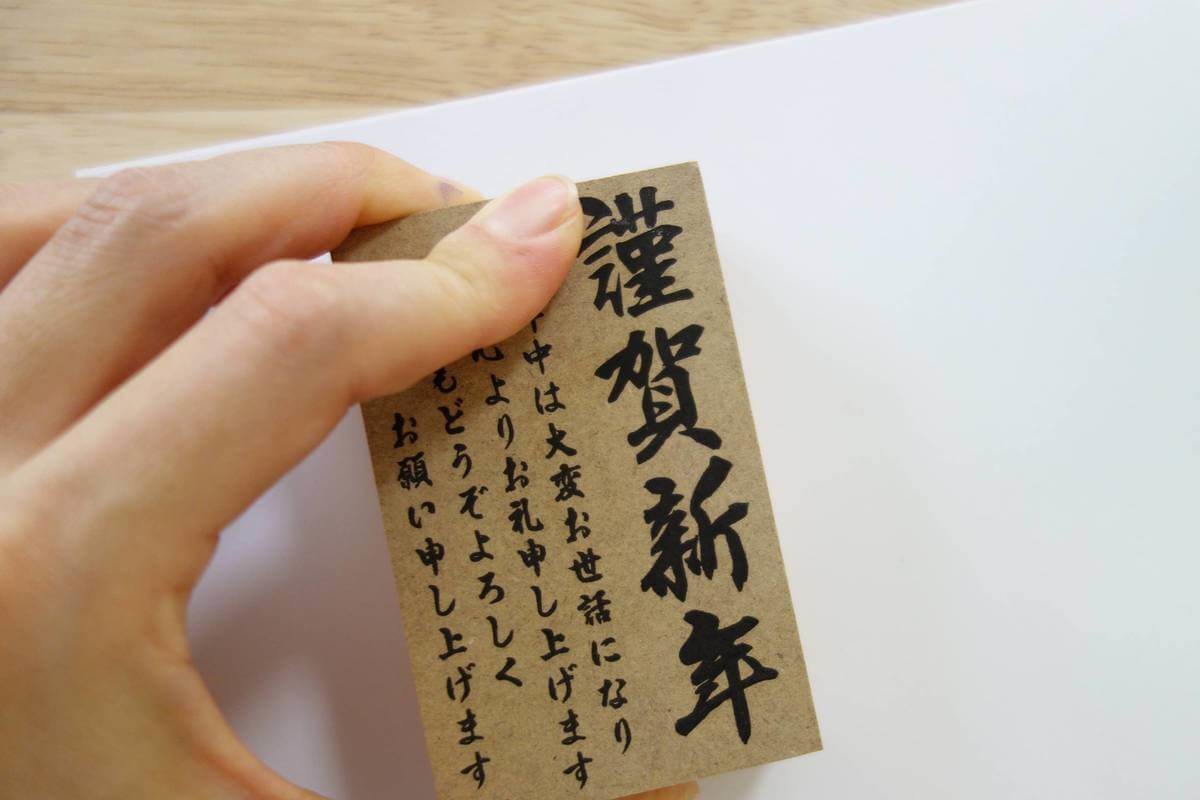 謹賀新年
中は大変お世話になり
よりお礼申し上げます
もどうぞよろしく
お願い申し上げます